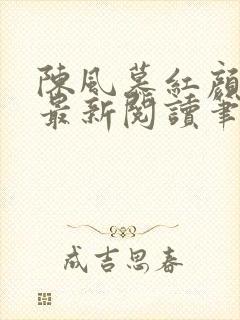 陳風慕紅顏
最新閱讀筆
成吉思春